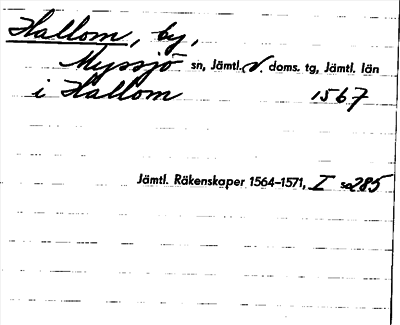 Hallom, by,
Myssjö sn, Jämtl. V. doms. tg, Jämtl. län
i Hallom 1567
Jämtl. Räkenskaper 1564–1571, I s. 285